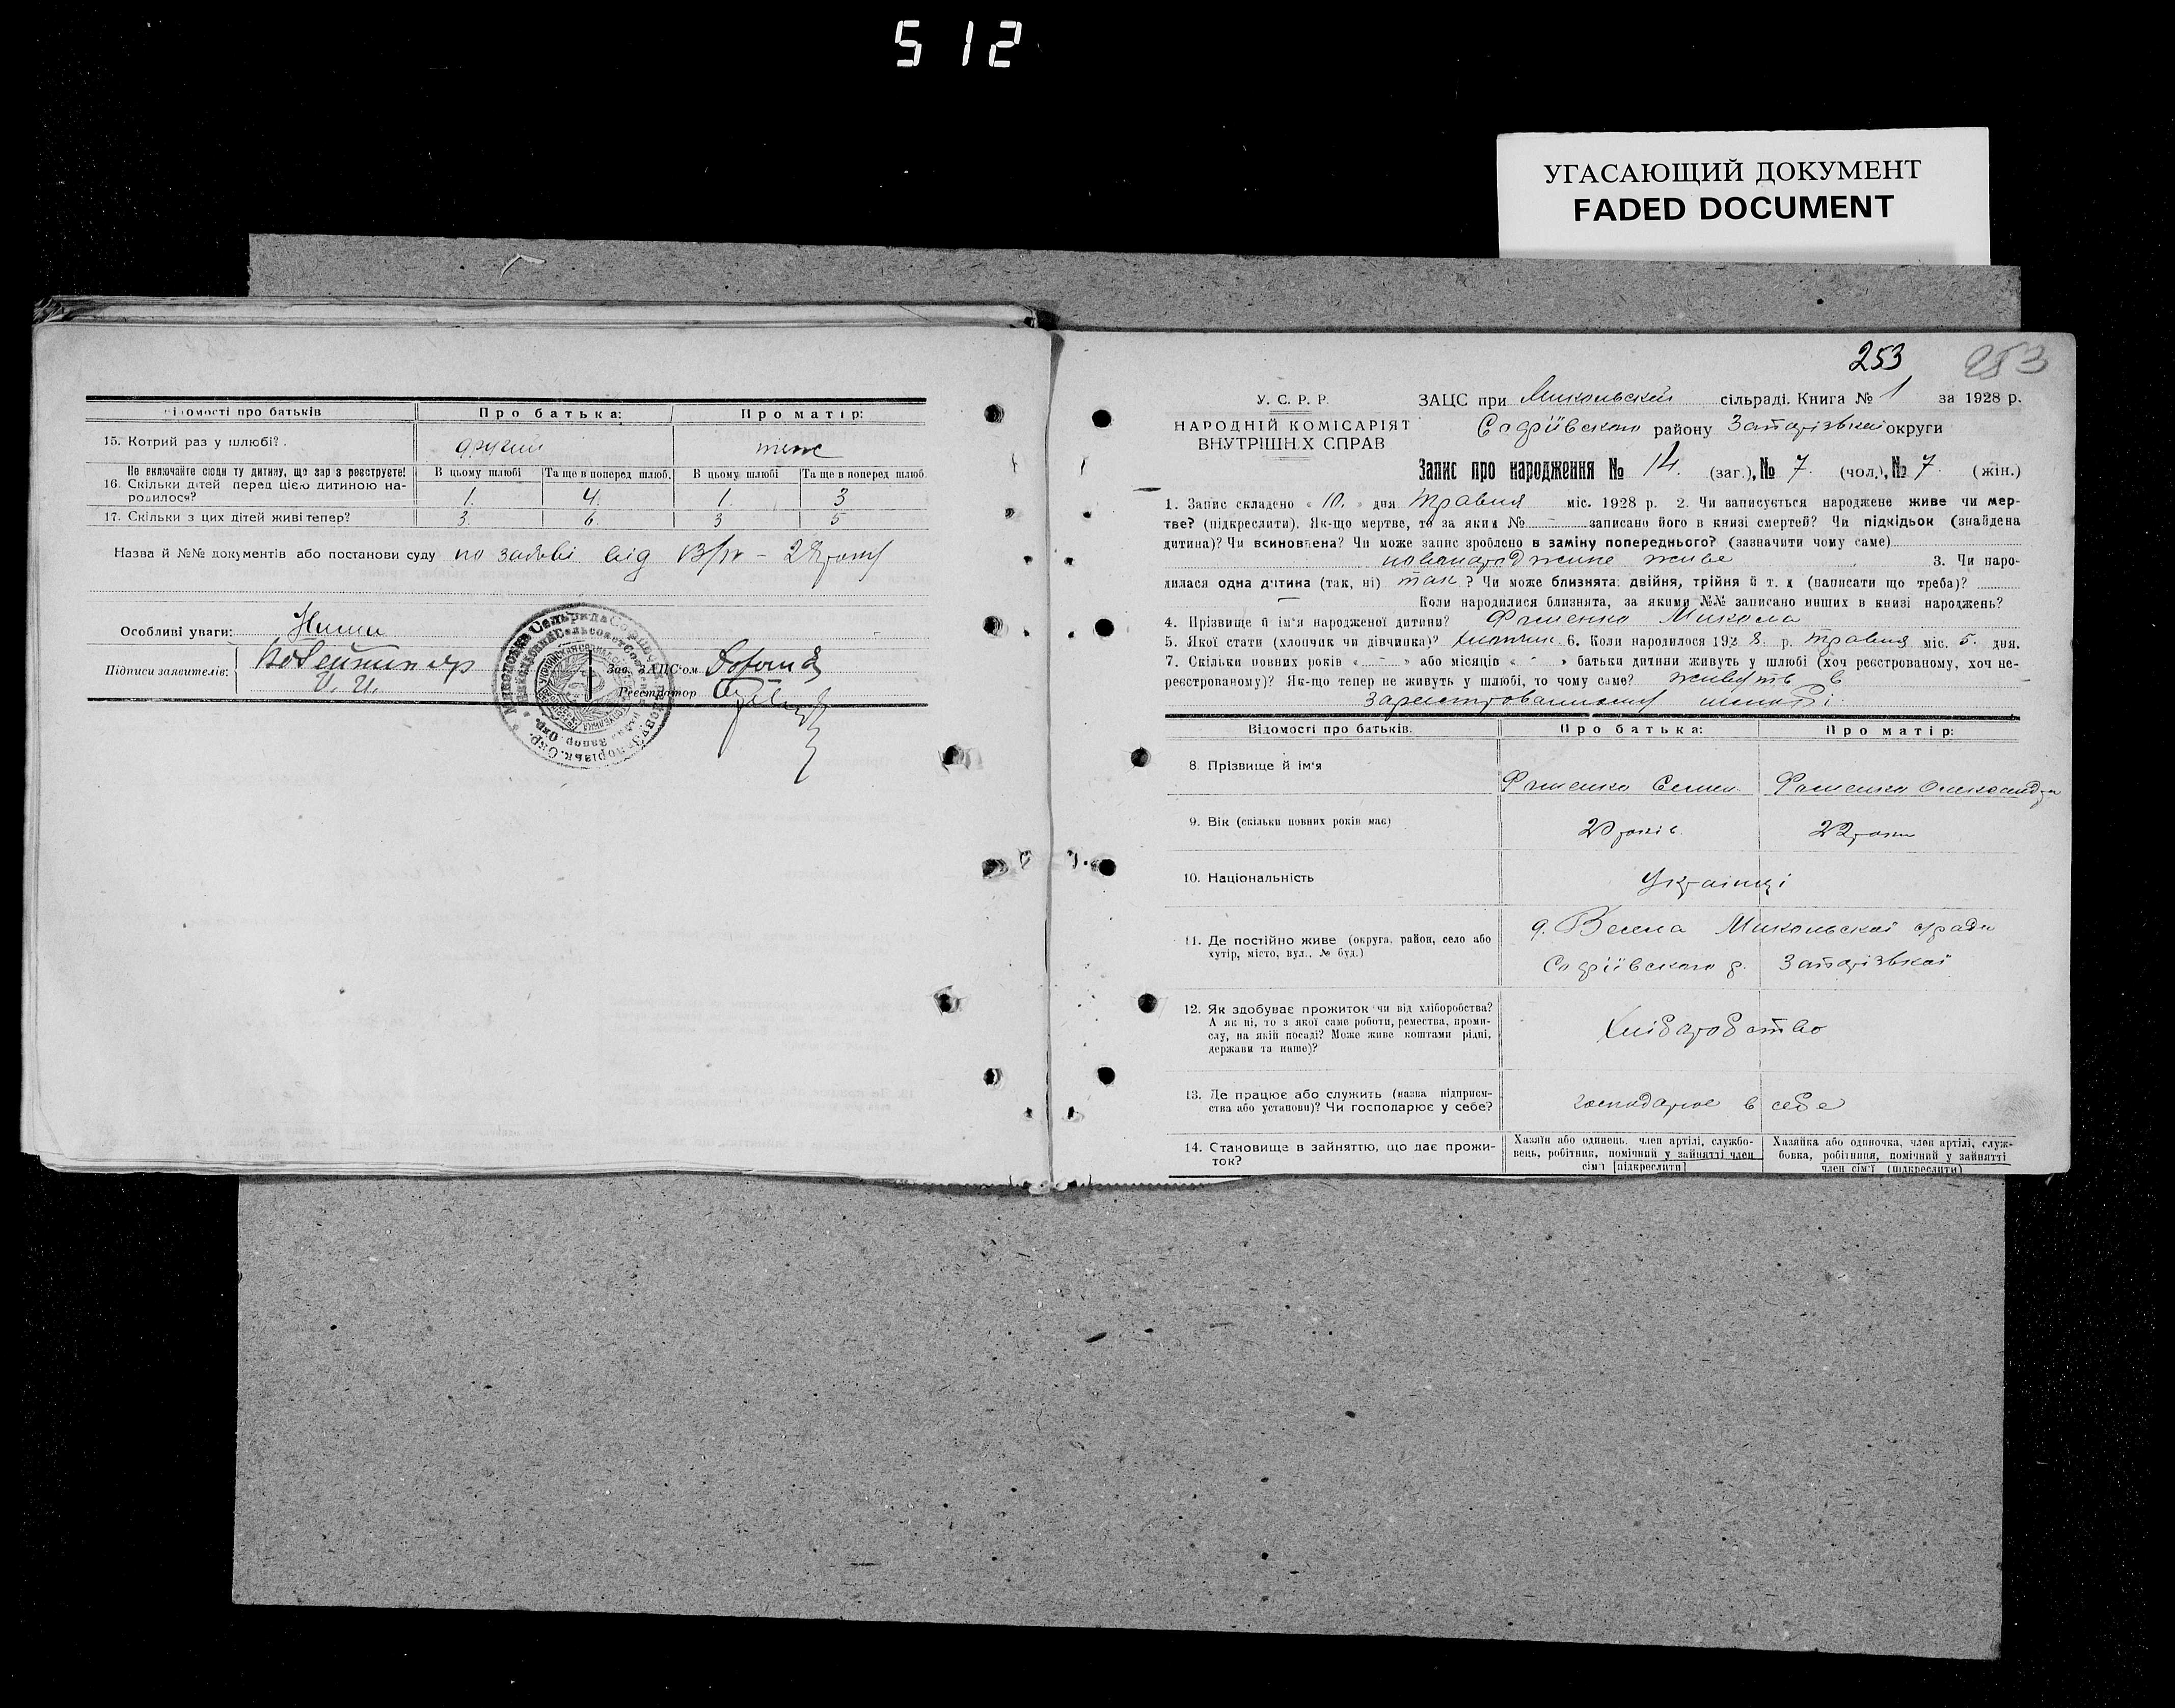 512
УГАСАЮЩИЙ ДОКУМЕНТ
FADED DOCUMENT
Відомості про батьків
Про батька:
Про матір:
15. Котрий раз у шлюбі?
другий
теж
Не включайте сюди ту дитину, що зараз реєструєте!
16. Скільки дітей перед цією дитиною народилося?
В цьому шлюбі
Та ще в поперед. шлюб.
В цьому шлюбі
Та ще в поперед шлюб.
1. 4. 1. 3
17. Скільки з цих дітей живі тепер?
3. 6. 3 5
Назва й №№ документів або постанови суду по заяві від
Особливі уваги:
Підписи заявителів:
И. И.
Зав. ЗАГС'ом
Реєстратор
253
253
У. С. Р. Р.
НАРОДНІЙ КОМІСАРІЯТ
ВНУТРІШНІХ СПРАВ
ЗАЦС при Микольскій сільраді. Книга № 1 за 1928 р.
Софіївського району Запорізької округи
Запис про народження № 14. (заг.), № 7. (чол.), № 7. (жін.)
1. Запис складено « 10. » дня Травня міс. 1928 р. 2. Чи записується народжене живе чи мер-
тве? (підкреслити). Як-що мертве, то за яким № - записано його в книзі смертей? Чи підкідьок (знайдена
дитина)? Чи всиновлена? Чи може запис зроблено в заміну попереднього? (зазначити чому саме)
новонароджене живе 3. Чи наро-
дилася одна дитина (так, ні) так ? Чи може близнята: двійня, трійня й т. д (написати що треба)?
Коли народилися близнята, за якими №№ записано инших в книзі народжень?
4. Прізвище й ім'я народженої дитини? Микола
5. Якої стати (хлопчик чи дівчинка)? хлопчик 6. Коли народилося 1928 р. травня міс. 5. дня.
7. Скільки повних років « - » або місяців « - » батьки дитини живуть у шлюбі (хоч реєстрованому, хоч не-
реєстрованому)? Як-що тепер не живуть у шлюбі, то чому саме? живуть в
зареєстрованному шлюбі
Відомості про батьків.
Про батька:
Про матір:
8. Прізвище й ім'я
Семен
Олександра
9. Вік (скільки повних років має)
22 роки
10. Національність
Українці
11. Де постійно живе (округа, район, село або
хутір, місто, вул., № буд.)
Весела Микольскої с/ради
Софіївського р. Запорізької
12. Як здобуває прожиток чи від хліборобства?
А як ні, то з якої саме роботи, ремества, проми-
слу, на якій посаді? Може живе коштами рідні,
держави та инше)?
Хліборобство
13. Де працює або служить (назва підприєм-
ства або установи)? Чи господарює у себе?
господарює в себе
14. Становище в зайняттю, що дає прожи-
ток?
Хазяїн або одинець, член артілі, службо-
вець, робітник, помічний у зайнятті член
сім'ї [підкреслити]
Хазяйка або одиночка, член артілі, служ-
бовка, робітниця, помічний у зайнятті
член сім'ї (підкреслити)